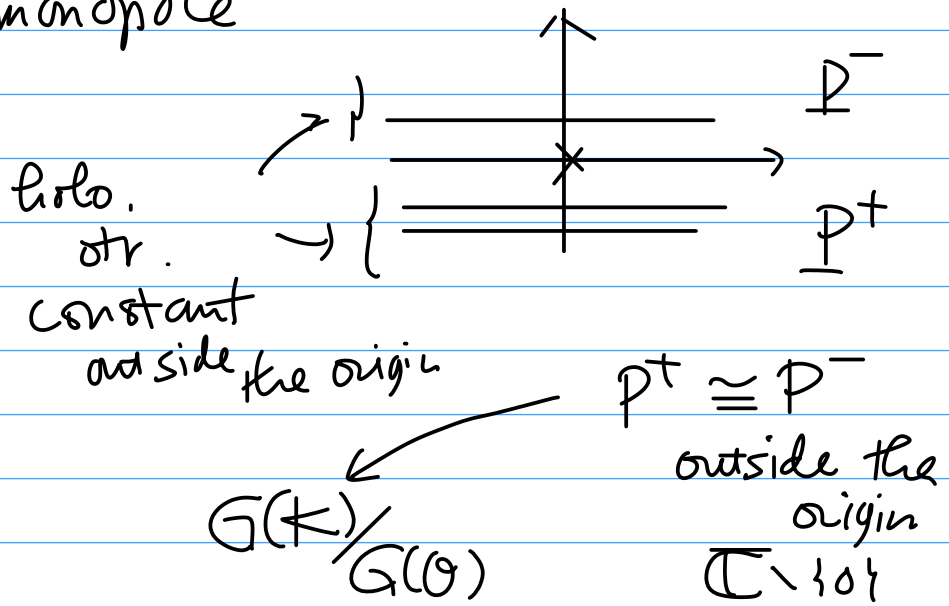 monopole
P⁻
holo.
str.
constant
outside the origin
P⁺
P⁺ ≅ P⁻
outside the
origin
ℂ∖{0}
G(K)/G(O)